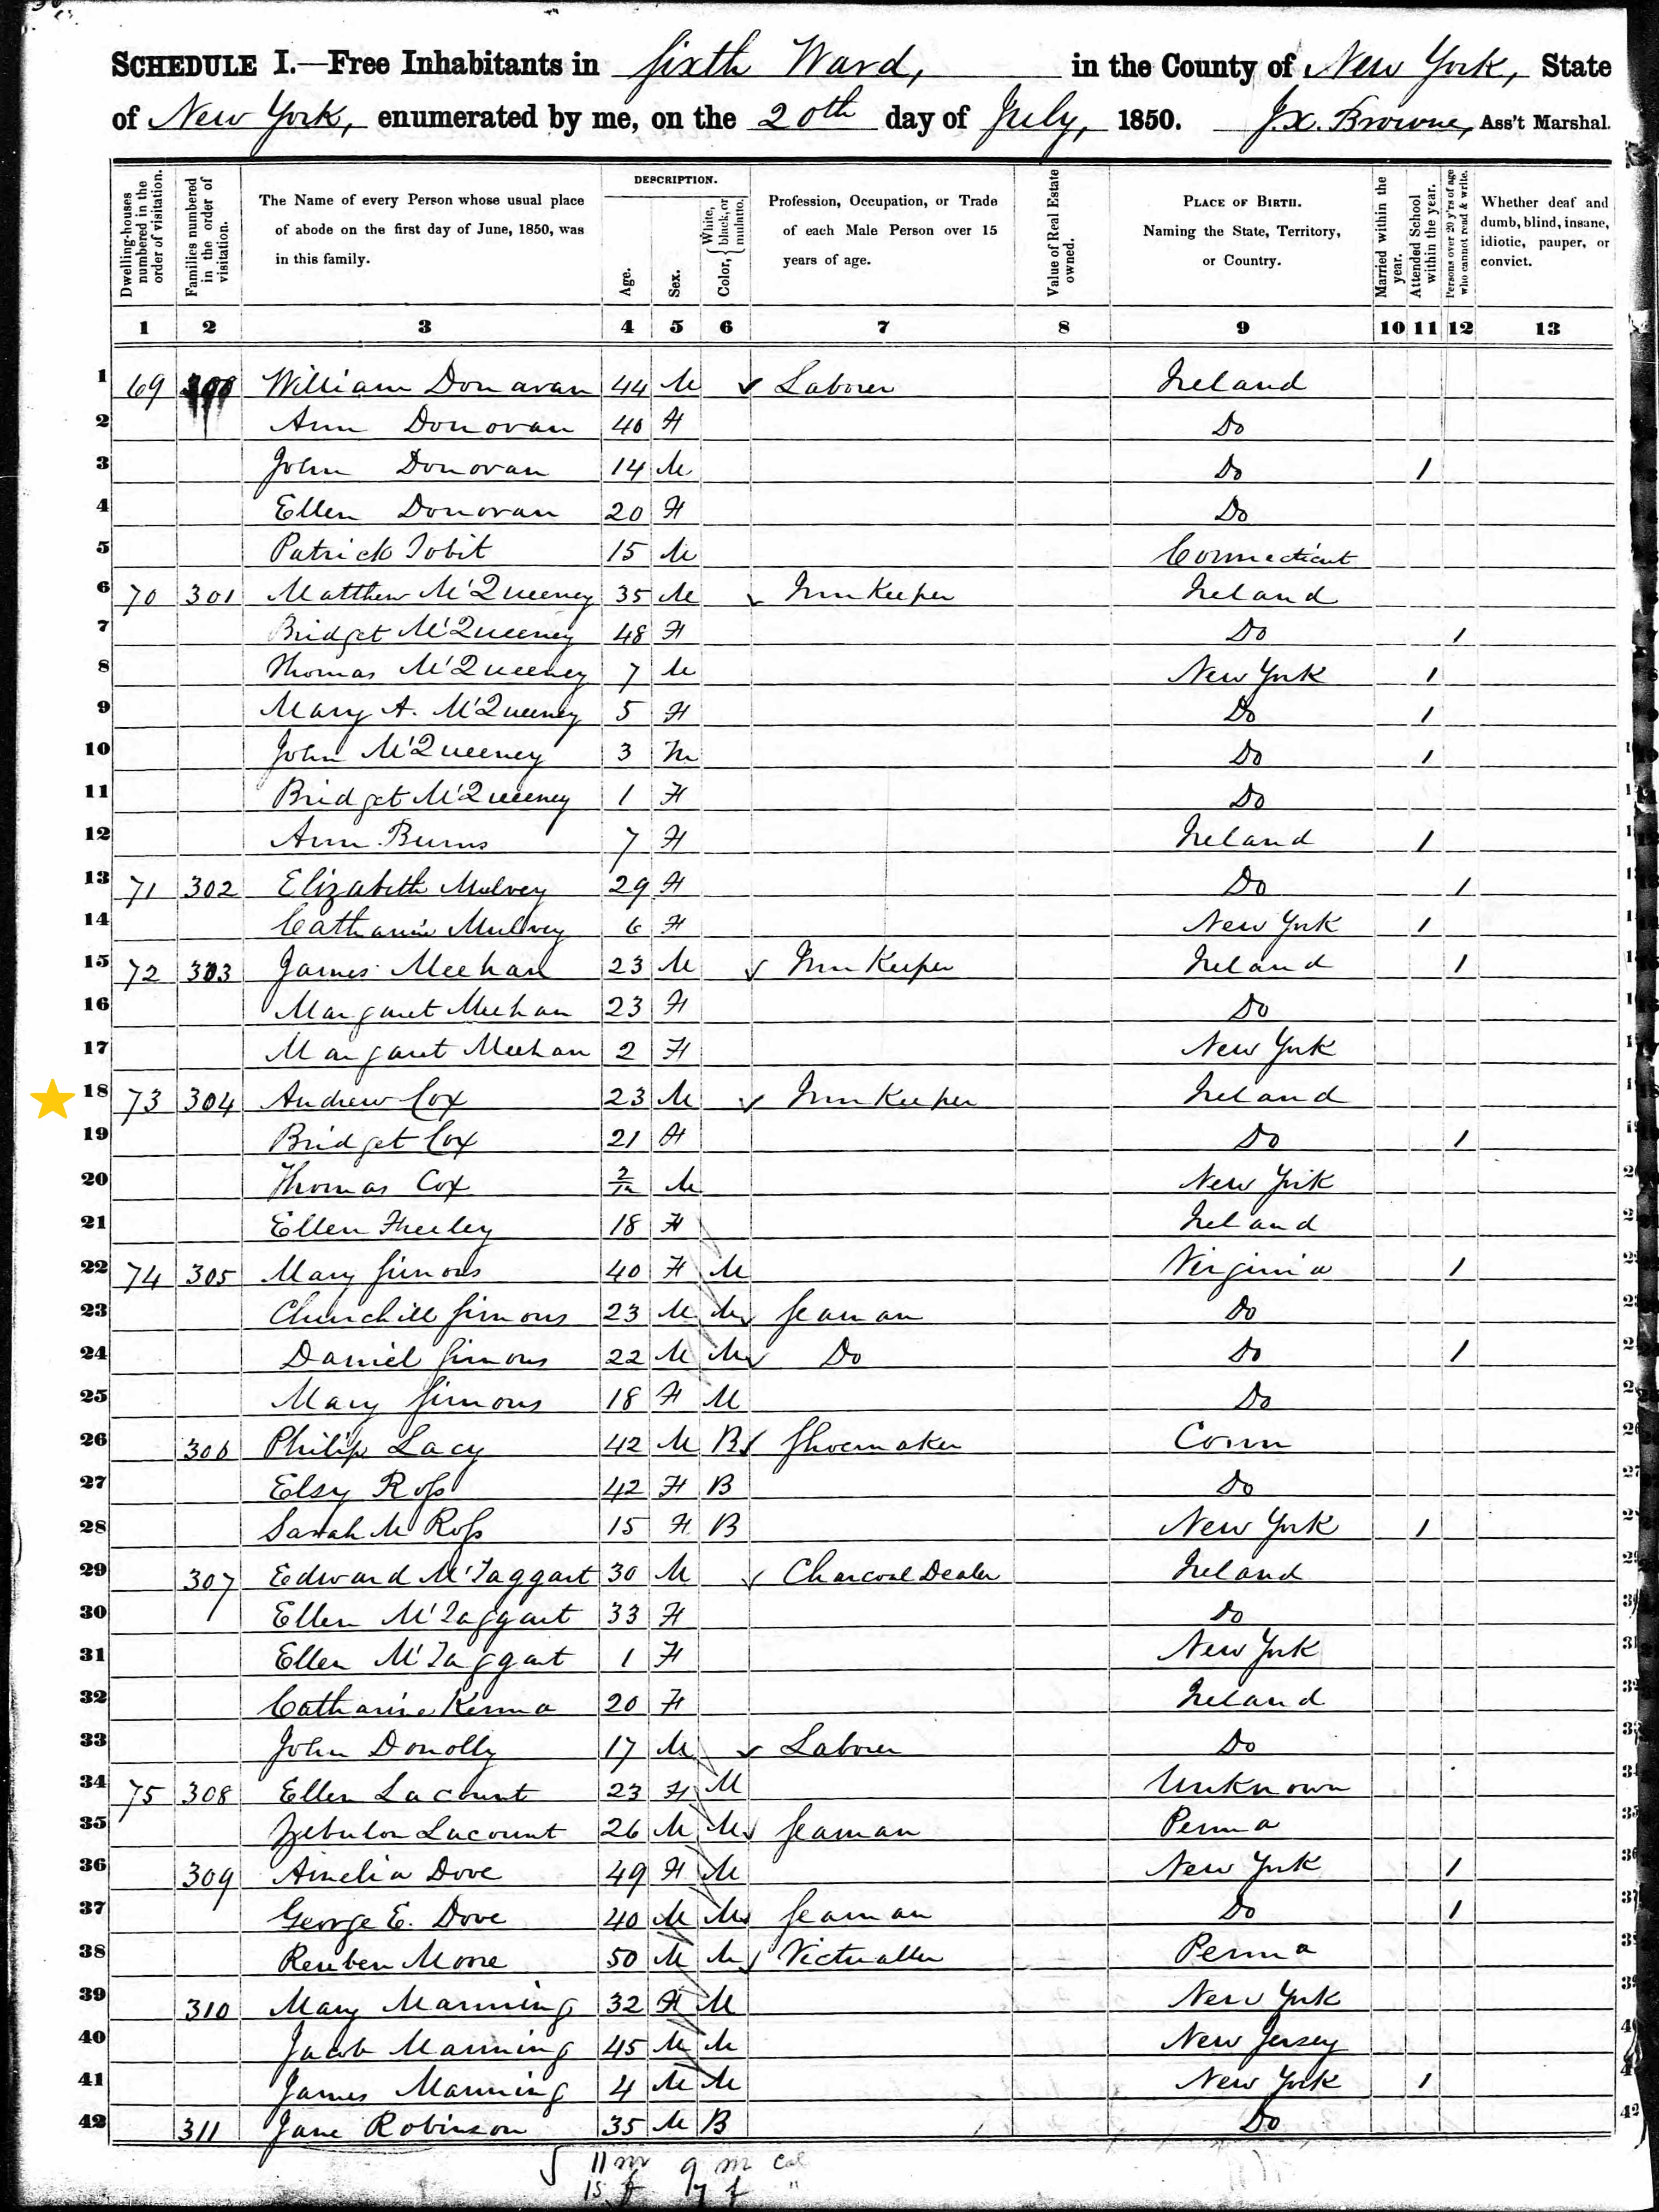 SCHEDULE I.—Free Inhabitants in Sixth Ward, in the County of New York, State
of New York, enumerated by me, on the 20th day of July, 1850. J.X. Browne, Ass't Marshal.
Dwelling-houses numbered in the order of visitation.
Families numbered in the order of visitation.
The Name of every Person whose usual place of abode on the first day of June, 1850, was in this family.
DESCRIPTION.
Age.
Sex.
Color, { White, black, or mulatto.
Profession, Occupation, or Trade of each Male Person over 15 years of age.
Value of Real Estate owned.
PLACE OF BIRTH. Naming the State, Territory, or Country.
Married within the year.
Attended School within the year.
Persons over 20 y'rs of age who cannot read & write.
Whether deaf and dumb, blind, insane, idiotic, pauper, or convict.
1 2 3 4 5 6 7 8 9 10 11 12 13
1 69 300 William Donavan 44 M ✓ Laborer Ireland
2 Ann Donovan 40 F Do
3 John Donovan 14 M Do 1
4 Ellen Donovan 20 F Do
5 Patrick Tobit 15 M Connecticut
6 70 301 Matthew M'Queeney 35 M ✓ Inn Keeper Ireland
7 Bridget M'Queeney 48 F Do 1
8 Thomas M'Queeney 7 M New York 1
9 Mary A. M'Queeney 5 F Do 1
10 John M'Queeney 3 M Do 1
11 Bridget M'Queeney 1 F Do
12 Ann Burns 7 F Ireland 1
13 71 302 Elizabeth Mulvey 29 F Do 1
14 Catharine Mulvey 6 F New York 1
15 72 303 James Meehan 23 M ✓ Inn Keeper Ireland 1
16 Margaret Meehan 23 F Do
17 Margaret Meehan 2 F New York
18 73 304 Andrew Cox 23 M ✓ Inn Keeper Ireland
19 Bridget Cox 21 F Do 1
20 Thomas Cox 2/12 M New York
21 Ellen Feeley 18 F Ireland
22 74 305 Mary Simons 40 F M Virginia 1
23 Churchill Simons 23 M M ✓ Seaman Do
24 Daniel Simons 22 M M ✓ Do Do 1
25 Mary Simons 18 F M Do
26 306 Philip Lacy 42 M B ✓ Shoemaker Conn
27 Elsy Ross 42 F B Do
28 Sarah M Ross 15 F B New York 1
29 307 Edward M'Taggart 30 M ✓ Charcoal Dealer Ireland
30 Ellen M'Taggart 33 F Do
31 Ellen M'Taggart 1 F New York
32 Catharine Kenna 20 F Ireland
33 John Donolly 17 M ✓ Laborer Do
34 75 308 Ellen Lacount 23 F M Unknown
35 Zebulon Lacount 26 M M ✓ Seaman Penna
36 309 Amelia Dove 49 F M New York 1
37 George E. Dove 40 M M ✓ Seaman Do 1
38 Reuben Moore 50 M M ✓ Victualler Penna
39 310 Mary Manning 32 F M New York
40 Jacob Manning 45 M M New Jersey
41 James Manning 4 M M New York 1
42 311 Jane Robinson 35 M B Do
11 m 9 m col
15 f 17 f "